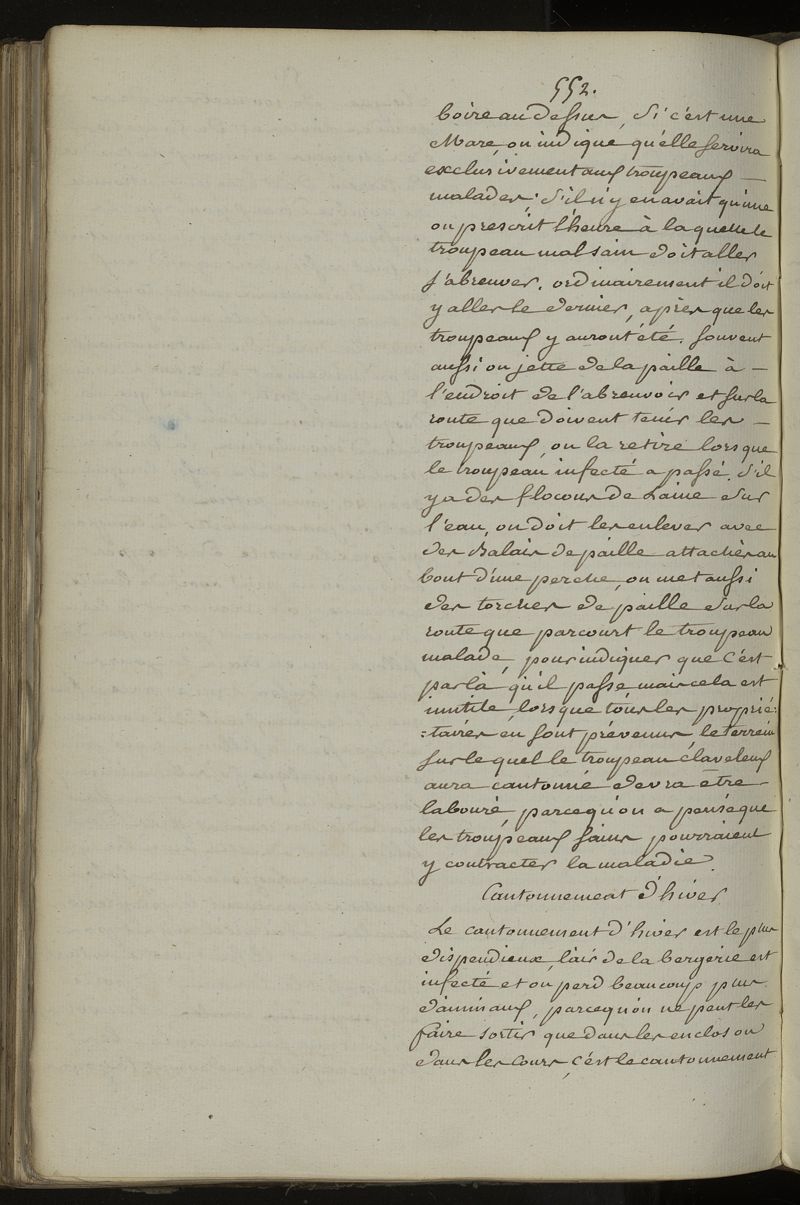 552.
boire au dessus, si c'est une
Mare, on indique qu'elle servira
exclusivement aux troupeaux —
malades; s'il n'y en avait qu'une
on prescrit l'heure à laquelle le
troupeau mal sain doit aller
s'abreuver. ordinairement il doit
y aller le dernier, après que les
troupeaux y auront été. souvent
aussi on jette de la paille à —
l'endroit de l'abreuvoir et sur la
route que doivent tenir les —
troupeaux, on la retire lorsque
le troupeau infecté a passé. s'il
y a des flocons de Laine sur
l'eau, on doit les enlever avec
des Balais de paille attachés au
bout d'une perche, on met aussi
des torches de paille sur la
route que parcourt le troupeau
malade, pour indiquer que c'est
par là qu'il passe mais cela est
inutile, lorsque tous les proprié=
=taires en sont prévenus, le terrein
sur le quel le troupeau claveleux
aura cantonné devra être —
labouré, parcequ'on a pensé que
les troupeaux sains pourraient
y contracter la maladie.
Cantonnement d'hiver
Le cantonnement d'hiver est le plus
dispendieux, l'air de la bergerie est
infecté et on perd beaucoup plus
d'animaux, parcequ'on ne peut les
faire sortir que dans les enclos ou
dans les Cours, c'est le cantonnement